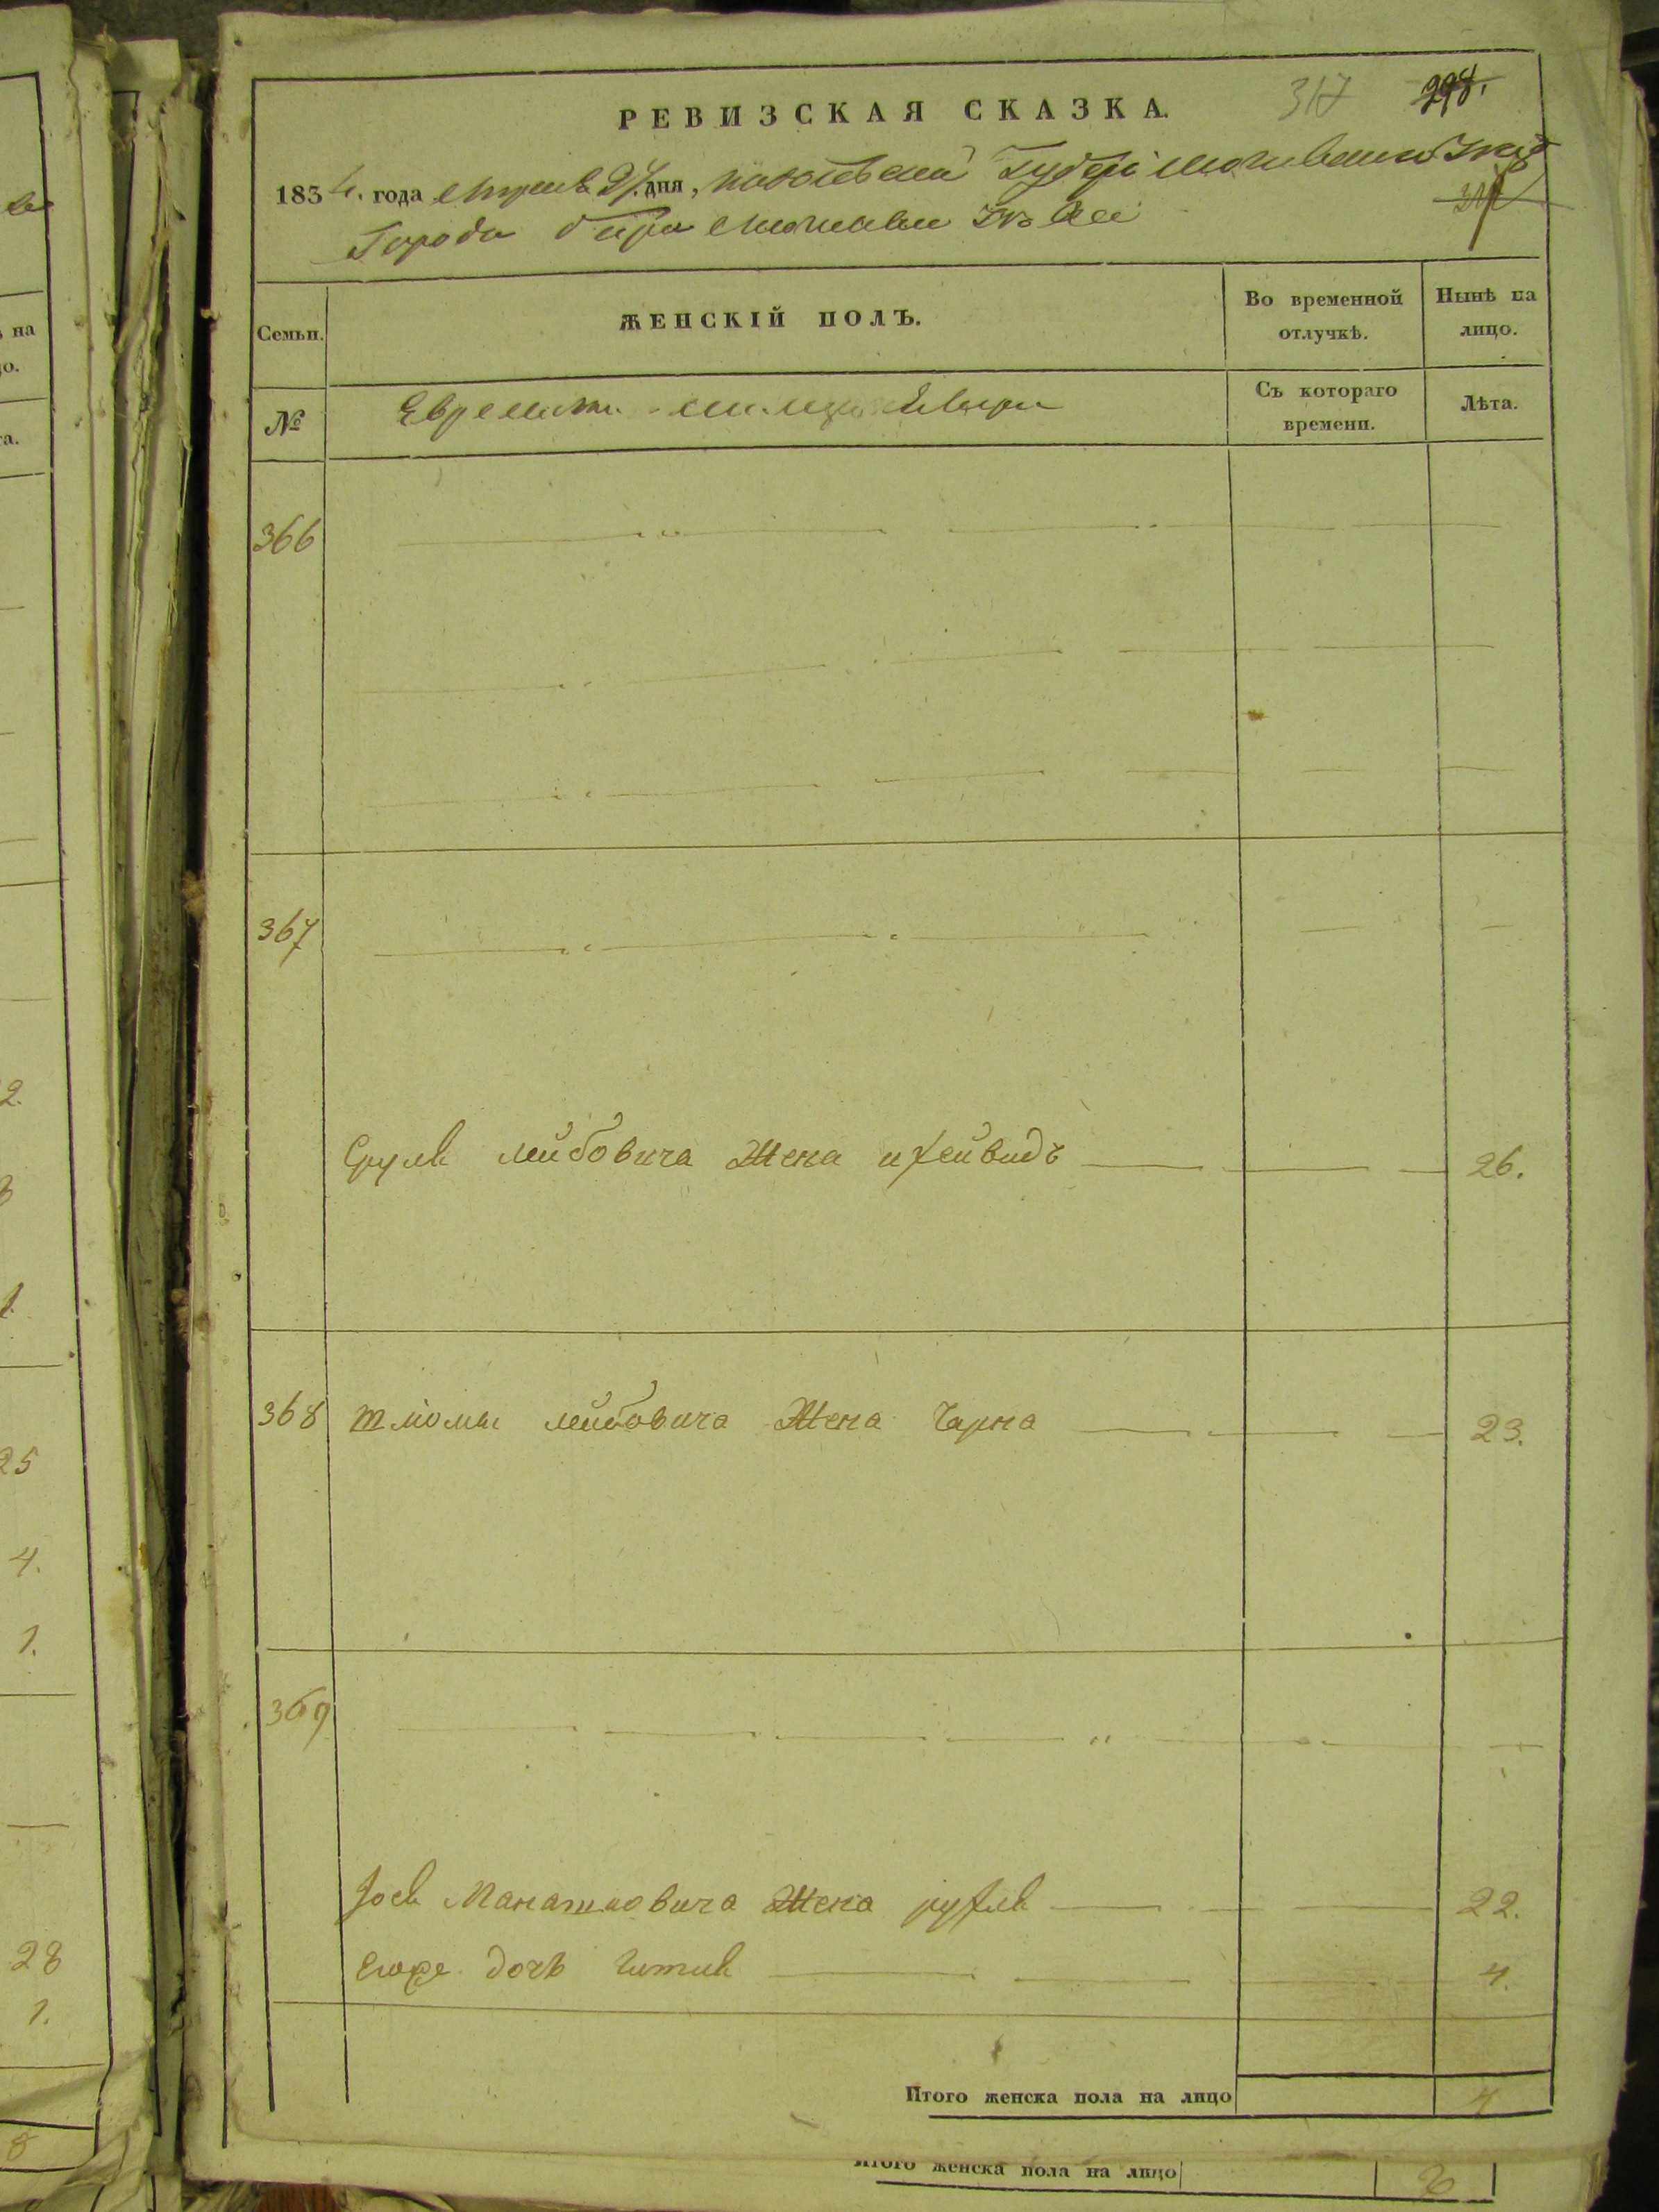 РЕВИЗСКАЯ СКАЗКА.
317 298.
1834. года Апреля 24. дня,
Города
Семьи.
ЖЕНСКІЙ ПОЛЪ.
Во временной отлучкѣ.
Нынѣ на лицо.
№
Съ котораго времени.
Лѣта.
366
367
Сруля Лейбовича Жена 26.
368 Шліомы Лейбовича Жена Чарна 23.
369
Іося Манашковича Жена рухля 22.
Егоже дочь Гитля 4.
Итого женска пола на лицо 4
Итого женска пола на лицо 6
на
2.
1.
25
4.
1.
28
1.
8